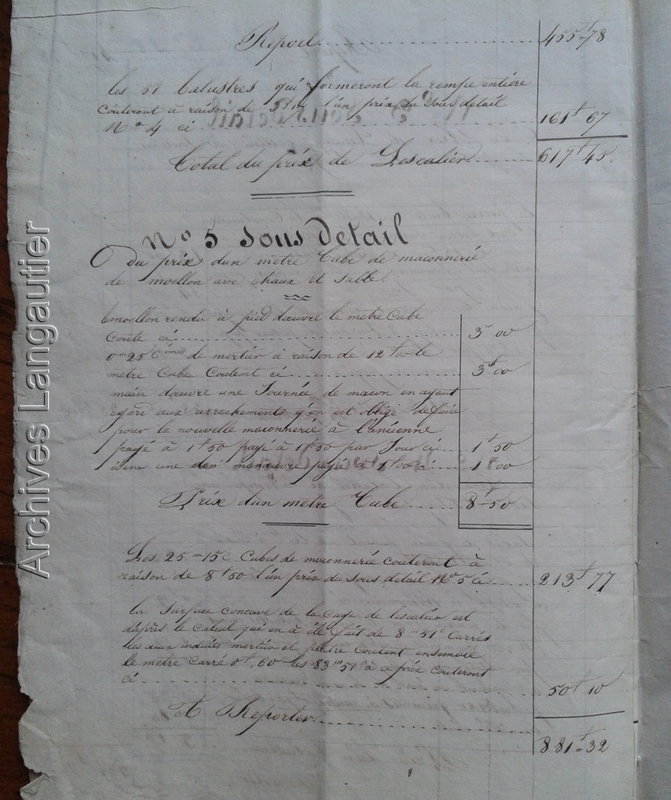 Report 455f-78
les 51 balustres qui formeront la rempe entiere
couteront à raison de l'un prix du sous detail
No 4 ci 161f 67
Total du prix de Lescalier 617f 45
No 5 Sous detail
Du prix dun metre Cube de maconnerie
de moellon ave chaux et sable
moellon rendu à pied dœuvre le metre Cube
Coute ci 3f 00
0m25C de mortier à raison de 12f00 le
metre Cube Coutent ci 3f 00
main dœuvre une Journée de macon en ayant
egard aux arrachements q'on est obligé de faire
pour la nouvelle maconnerie à l'ancienne
payé à 1f50 payé à 1f50 par Jour ci 1f50
idem une de manœuvre payé à 1f00 ci 1f00
Prix dun metre Cube 8f-50
Les 25m 15c Cubes de maconnerie couteront à
raison de 8f50 l'un prix du sous detail No 5 ci 213f 77
la surface concave de la cage de lescalier est
daprès le calcul qui en à été fait de 8m 51c Carrés
les deux enduits mortier et platre coutent ensemble
le metre carré 0f.60 les 83m51c à ce prix couteront
ci 50f10
A Reporter 881f-32
Archives Langautier